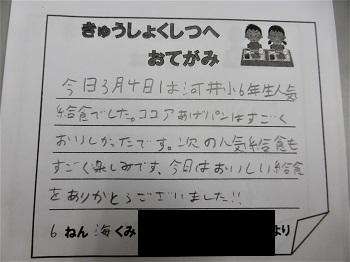 きゅうしょくしつへ
おてがみ
今日3月4日は河井小6年生人気
給食でした。ココアあげパンはすごく
おいしかったです。次の人気給食も
すごく楽しみです。今日はおいしい給食
をありがとうございました!!
6 ねん 海 くみ より